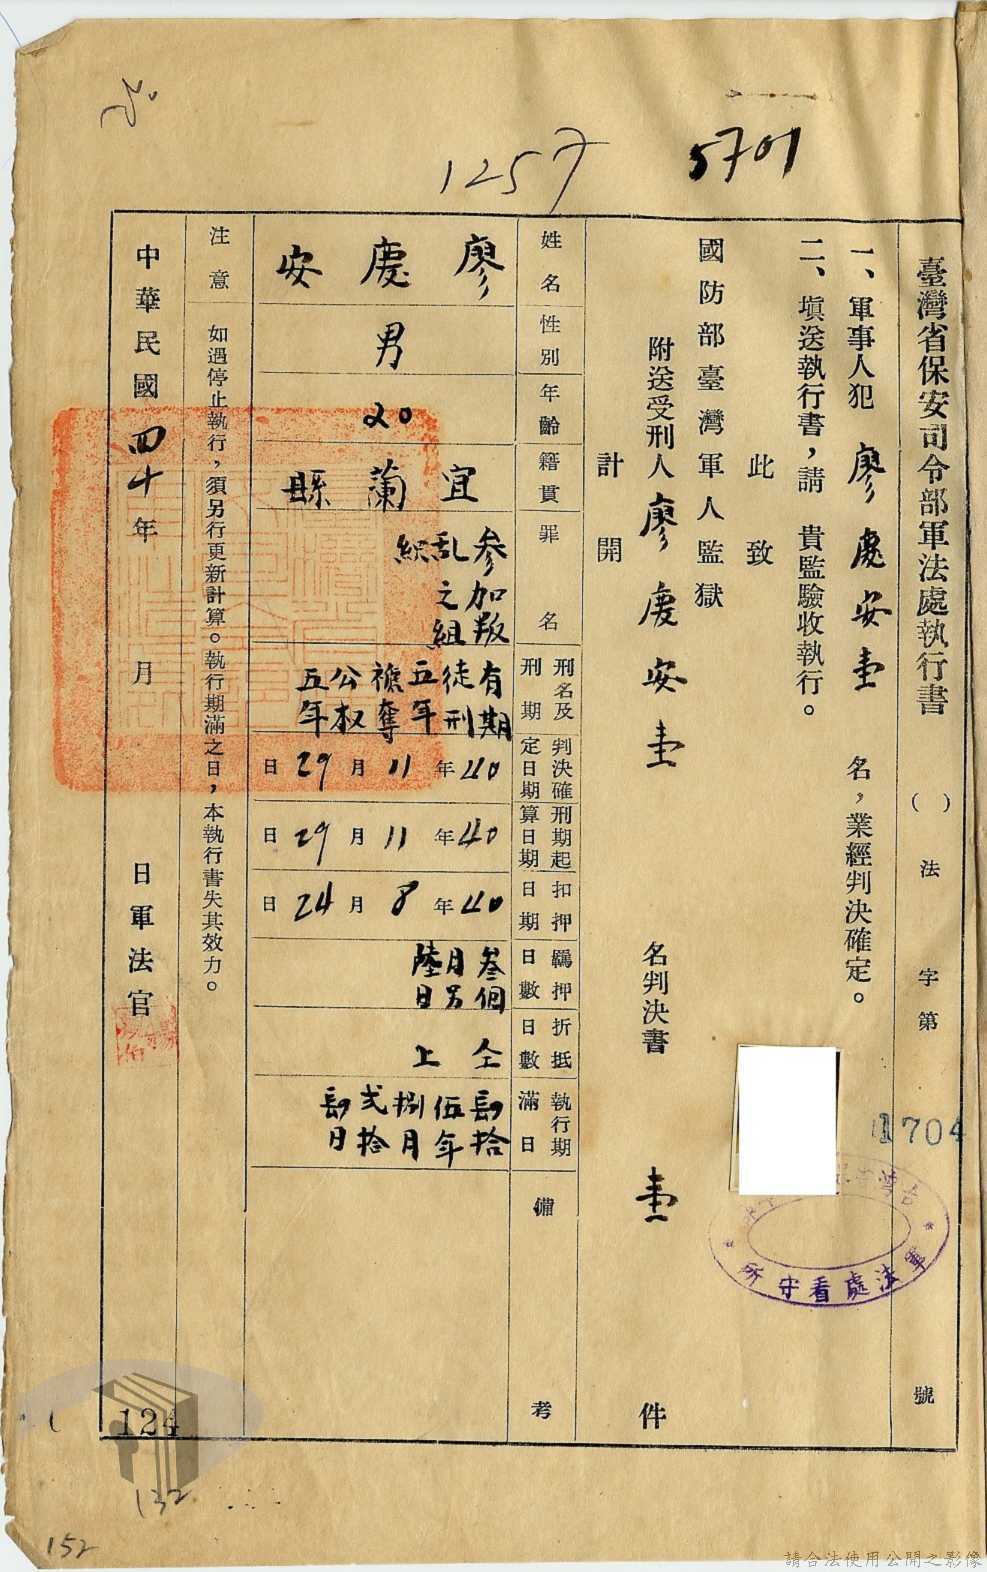 1257
5701
臺灣省保安司令部軍法處執行書
( )法字第 號
1704
一、軍事人犯 廖慶安壹 名,業經判決確定。
二、填送執行書,請 貴監驗收執行。
此致
國防部臺灣軍人監獄
附送受刑人廖慶安壹 名判決書 壹 件
計開
姓名
廖慶安
性別
男
年齡
20
籍貫
宜蘭縣
罪名
參加叛
亂之組
織
刑名及
刑期
有期
徒刑
五年
褫奪
公权
五年
判決確
定日期
40年11月29日
刑期起
算日期
40年11月29日
扣押
日期
40年8月24日
羈押
日數
叁個
月另
陸日
折抵
日數
仝上
執行期
滿日
肆拾
伍年
捌月
弍拾
肆日
備考
注意 如遇停止執行,須另行更新計算。執行期滿之日,本執行書失其效力。
中華民國四十年 月 日軍法官
軍法處看守所
124
132
152
請合法使用公開之影像